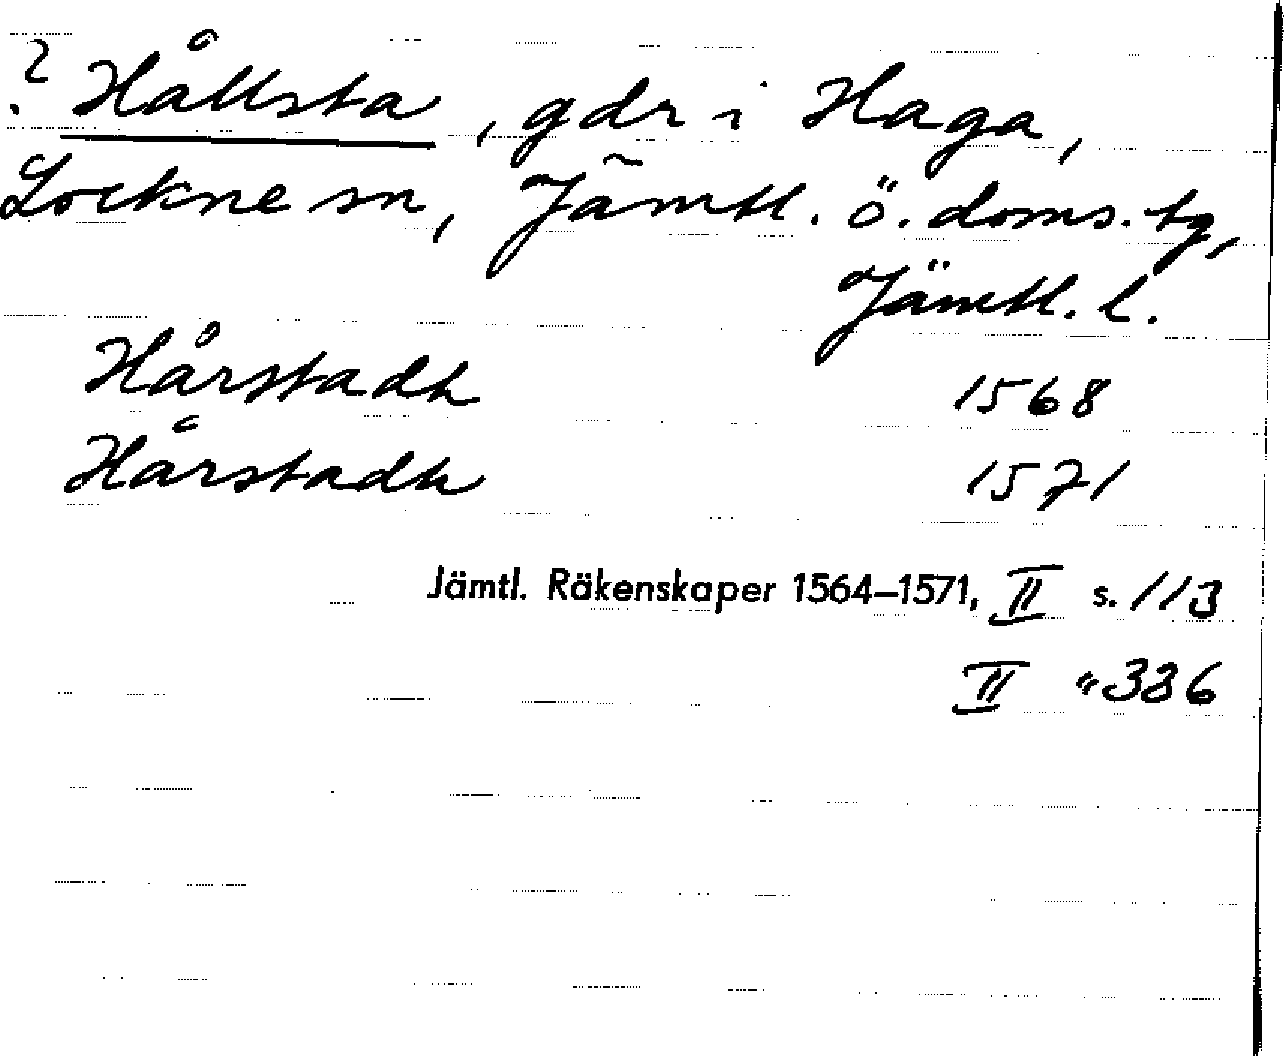 ? Hållsta, gdr i Haga,
Lockne sn, Jämtl. ö. doms. tg,
Jämtl. l.
Hårstadh 1568
Hårstadh 1571
Jämtl. Räkenskaper 1564–1571, II s. 113
II " 336